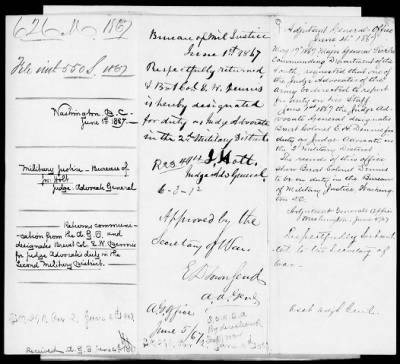 626. M. 1867
File with 550 S. 1867
Washington D.C.
June 1st 1867
Military Justice - Bureau of
Judge Advocate General
Returns communi-
cation from the A.G.O. and
designates Brevet Col. E. W. Dennis
for Judge Advocate duty in the
Second Military District.
Received A.G.O. June 1867
Bureau of Mil Justice
June 1st 1867
Respectfully returned,
Bvt Col E. W. Dennis
is hereby designated
for duty as Judge Advocate
in the 2d Military District
J. Holt.
Judge Adv General
Approved by the
Secretary of War.
E D Townsend
A. A. Genl
A G Office
June 5/67
Adjutant General's Office
June 1867
May 1867 Major General Sickles
Commanding Department of the
South, requested that one of
the Judge Advocates of the
Army be directed to report
for duty on his Staff.
June 1st 1867 the Judge Ad-
vocate General designates
Brevet Colonel E. W. Dennis for
duty as Judge Advocate in
the 2d Military District.
The records of this office
show Brevet Colonel Dennis
to be on duty in the Bureau
of Military Justice Washing-
ton D.C.
Adjutant General's Office
Washington June 1867
Respectfully submit-
ted to the Secretary of
War.
Asst Adjt Genl.